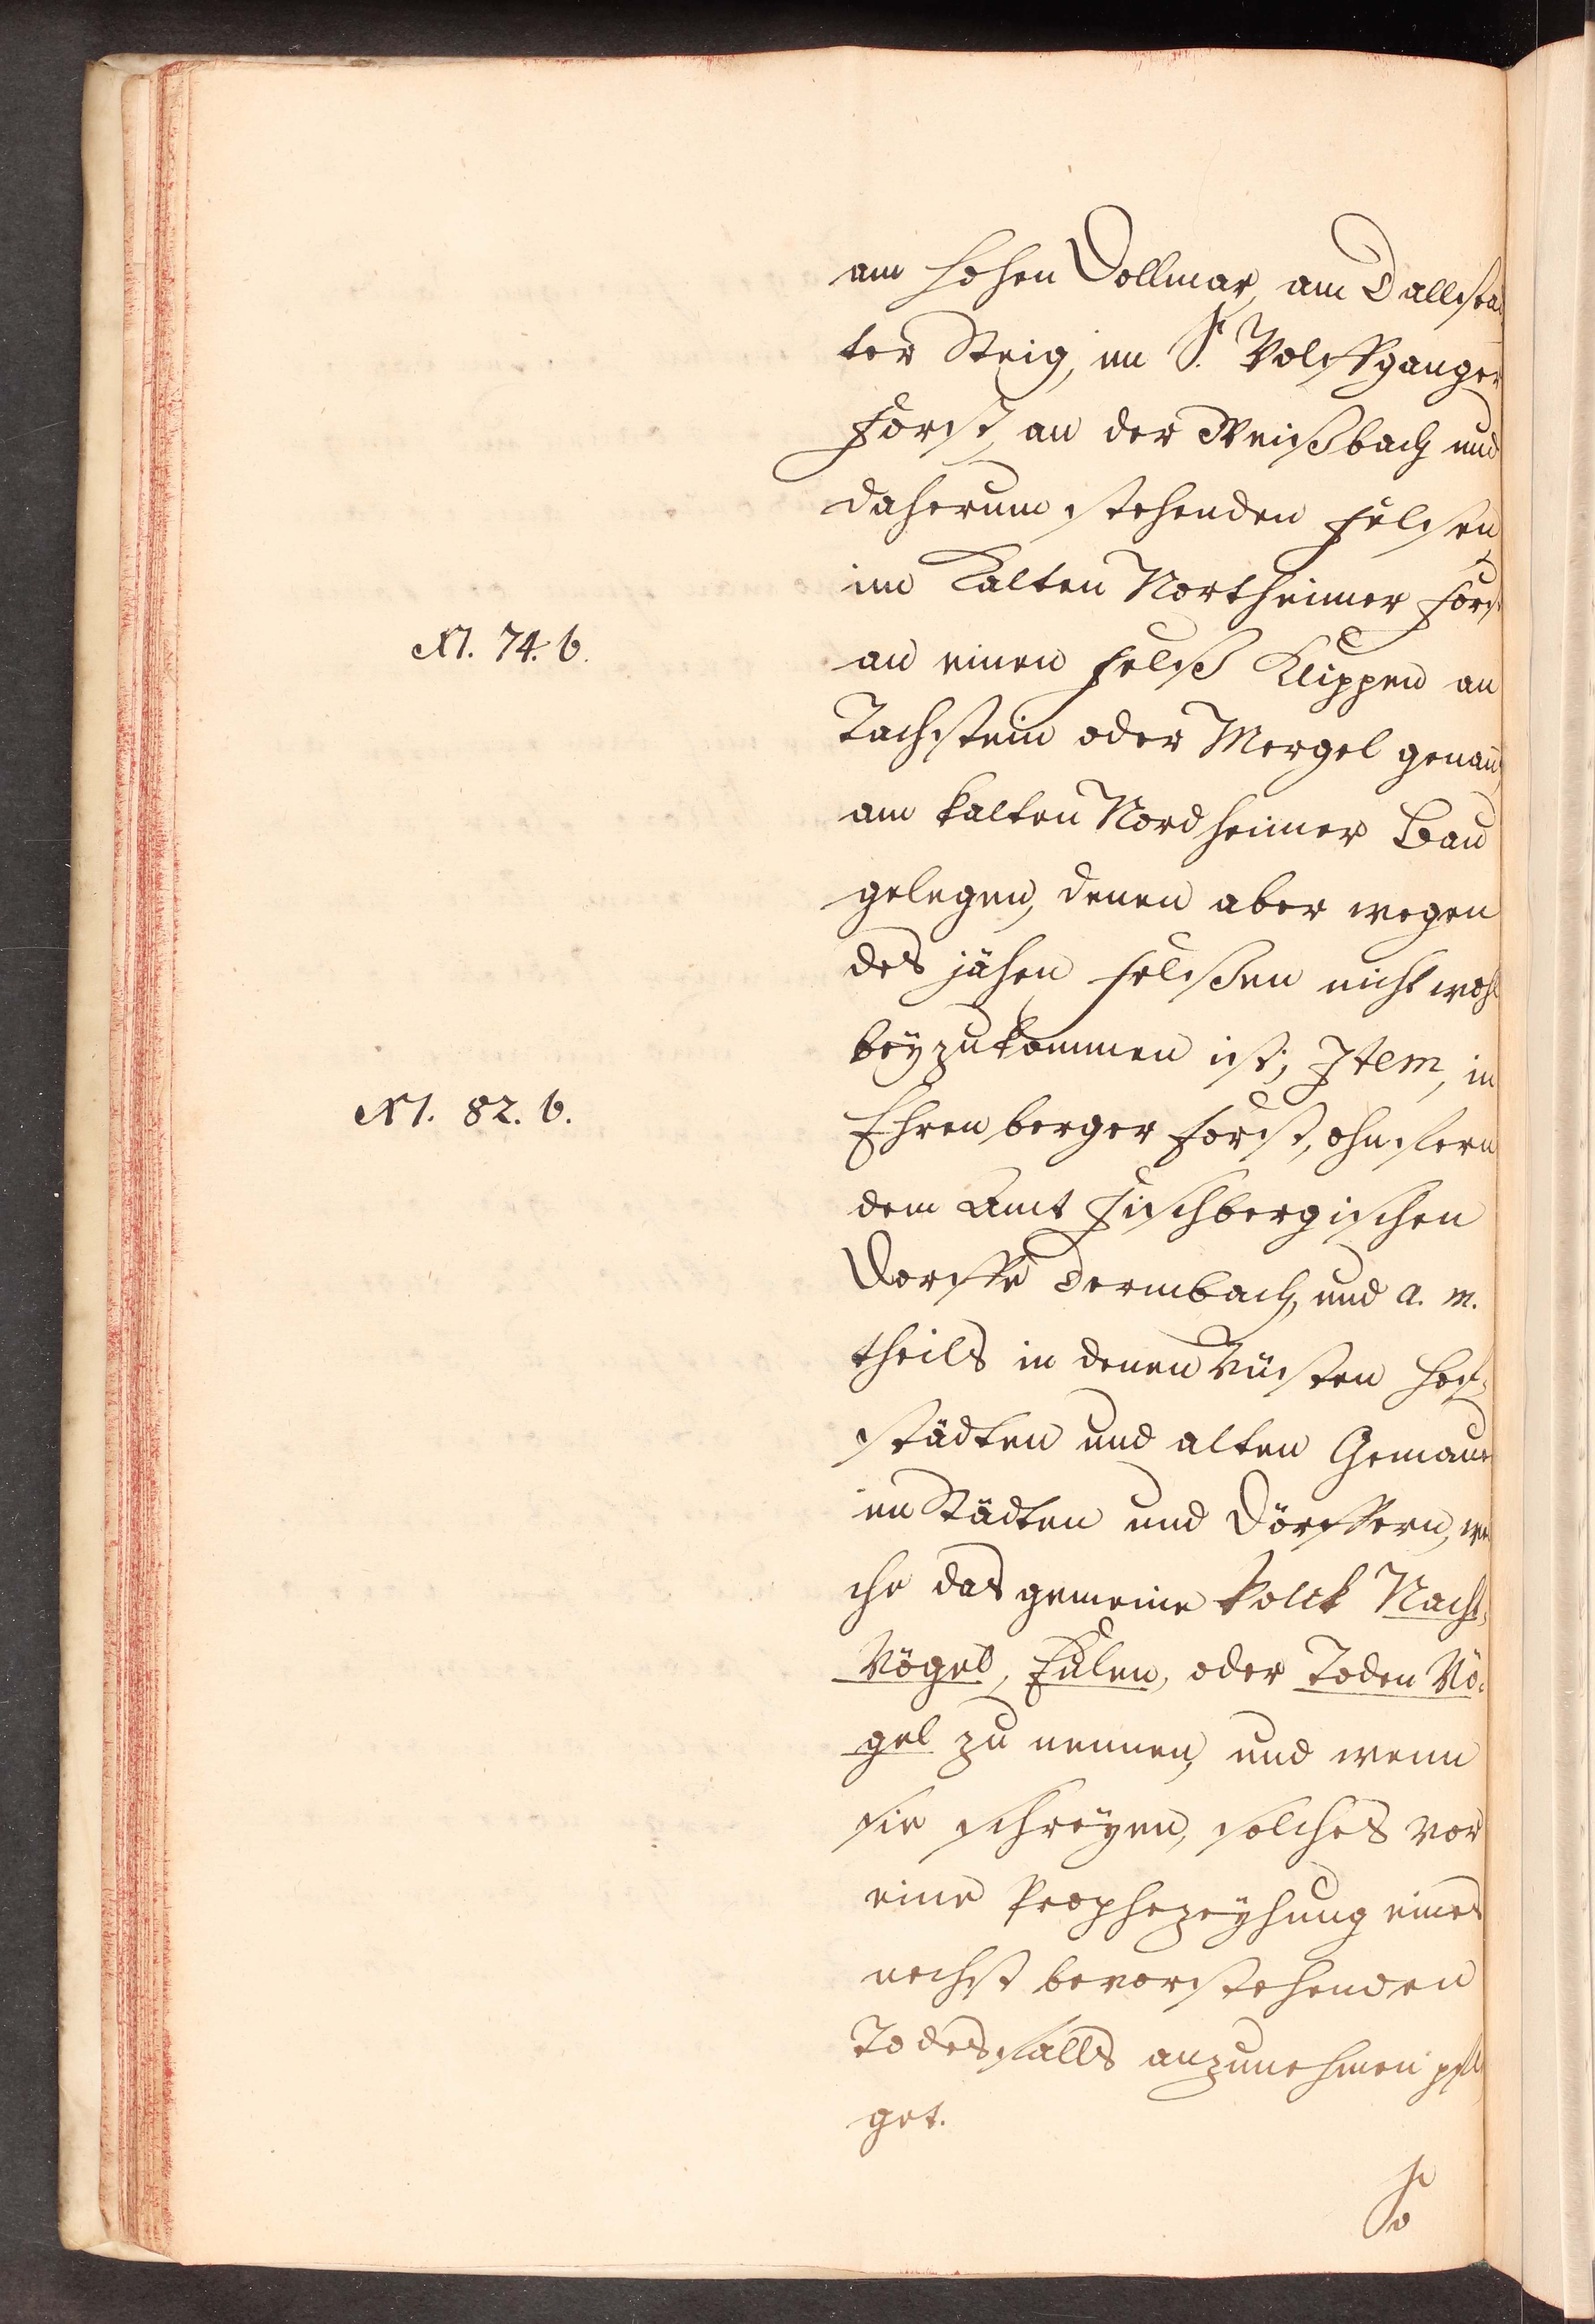 am hohen Dollmar, am Dallsta
ter Steig, im S. Wolffganger
Forst, an der Weißbach und
daherum stehenden Felsen
im Kalten Northeimer Forst
N. 74. b.
an einen Felß Klippen an
Tachstein oder Mergel genan
am kalten Nordheimer Bau
gelegen, denen aber wegen
des jähen Felßen nicht wohl
beÿzukommen ist; Item, in
N. 82. b.
Ehrenberger Forst, ohnfern
dem Amt Fischbergischen
Dorffe Dermbach, und a. m.
theils in denen Wüsten Hof-
städten und alten Gemaue
in Städten und Dörffern, we
che das gemeine Volck Nacht
Vögel, Eulen, oder Toden Vö-
gel zu nennen, und wenn
sie schreÿen, solches vor
eine Prophezeÿhung eines
nechst bevorstehenden
Todesfalls anzunehmen pfle
get.
So